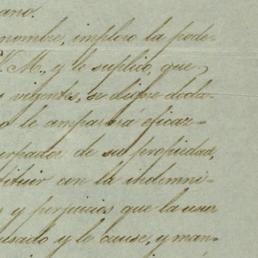 ano.
nombre, imploro la pode-
V. M., y le suplico, que,
s vigentes, se digne decla-
o le amparará eficaz-
erpador de su propiedad,
tituir con la indemni-
s y perjuicios que la usur
usado y le cause, y man-